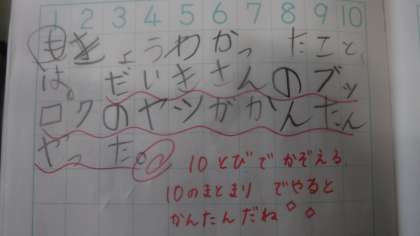 1 2 3 4 5 6 7 8 9 10
もきょうわかったこと
は。だいきさんのブッ
ロクのヤツがかんたん
やった。
10とびでかぞえる。
10のまとまりでやると
かんたんだね。